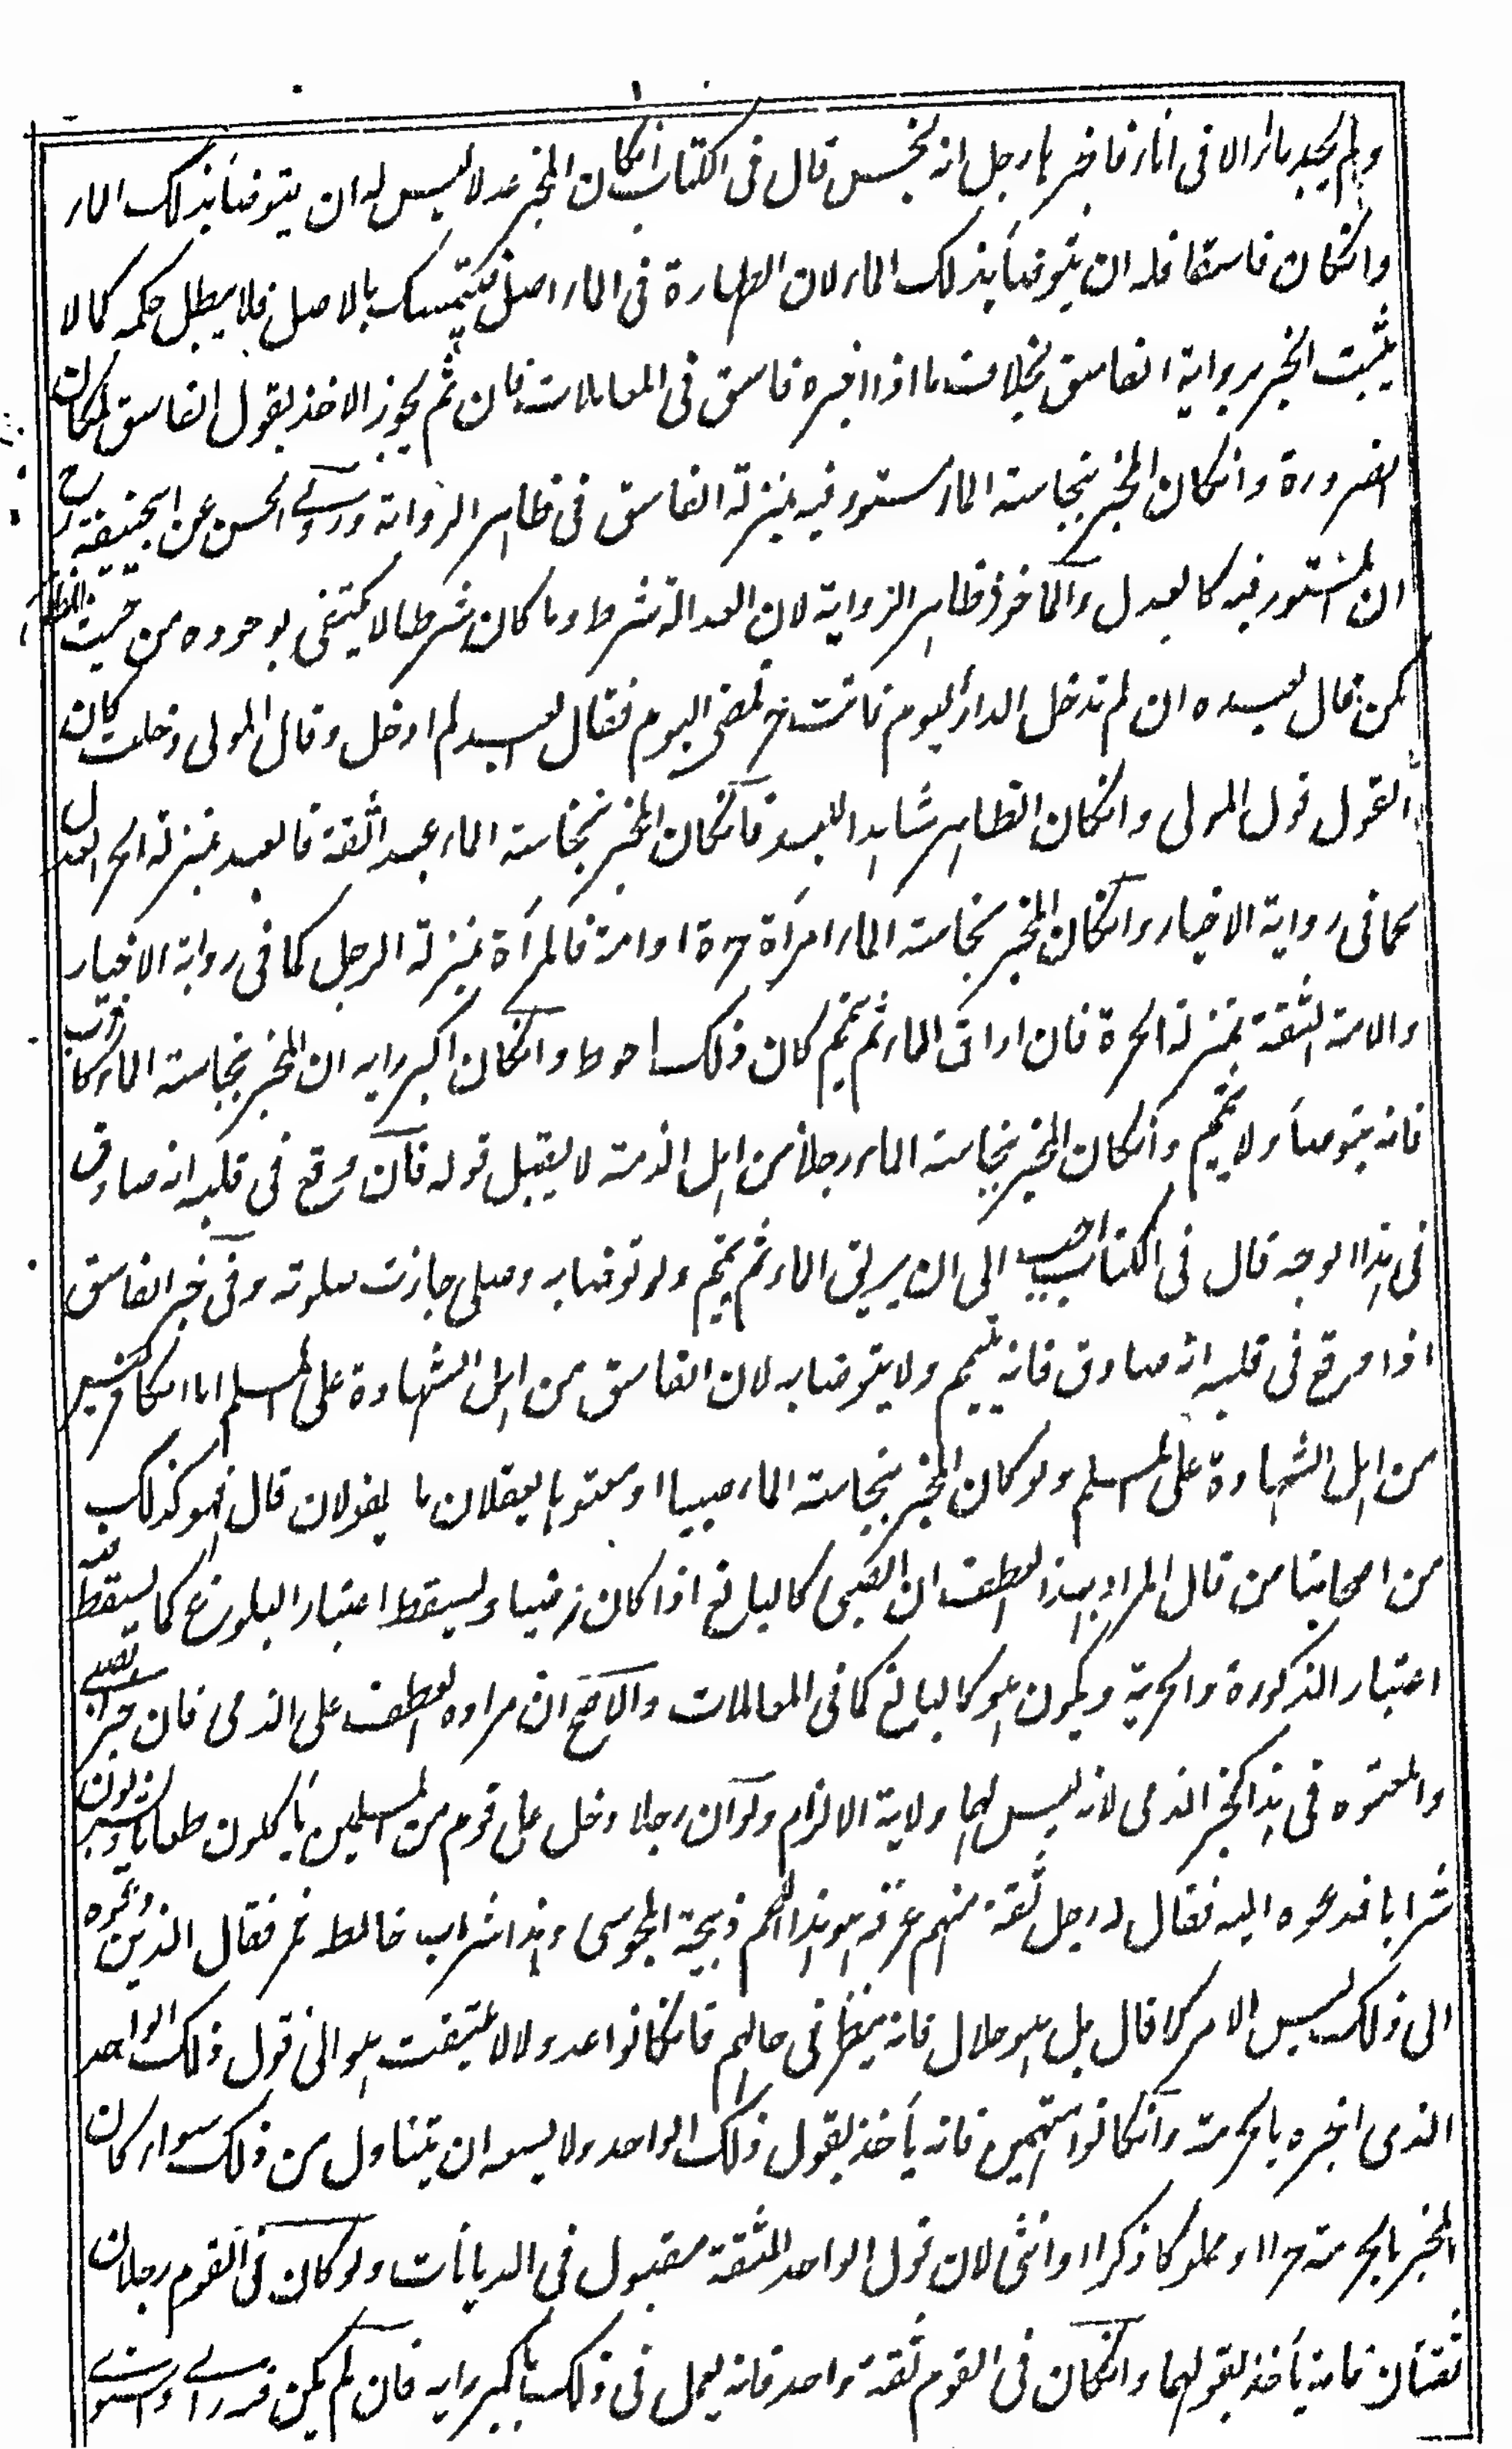 ولم يجد ماء الا فى اناء فاخبره رجل انه نجس قال فى الكتاب انكان المخبر عدلا ليس له ان يتوضأ بذلك الماء
وانكان فاسقا فله ان يتوضأ بذلك الماء لان الطهارة فى الماء اصل فيتمسك بالاصل فلا يبطل حكمه كما لا
يثبت الخبر برواية الفاسق بخلاف ما اذا اخبره فاسق فى المعاملات فان ثم يجوز الاخذ بقول الفاسق لمكان
الضرورة وانكان المخبر بنجاسة الماء مستور فيه بمنزلة الفاسق فى ظاهر الرواية وروى الحسن عن ابيحنيفة رح
ان المستور فيه كالعدل والماخوذ ظاهر الرواية لان العدالة شرط وما كان شرطا لا يكتفى بوجوده من حيث الظاهر
كمن قال لعبده ان لم تدخل الدار اليوم فانت حر فمضى اليوم فقال العبد لم ادخل وقال المولى دخلت كان
القول قول المولى وانكان الظاهر شاهدا للعبد فانكان المخبر بنجاسة الماء عبدا ثقة فالعبد بمنزلة الحر العدل
كما فى رواية الاخبار وانكان المخبر بنجاسة الماء امرأة حرة او امة فالمرأة بمنزلة الرجل كما فى رواية الاخبار
والامة الثقة بمنزلة الحرة فان اراق الماء ثم تيمم كان ذلك احوط وانكان اكبر رايه ان المخبر بنجاسة الماء كاذب
فانه يتوضأ ولا يتيمم وانكان المخبر بنجاسة الماء رجلا من اهل الذمة لا يقبل قوله فان وقع فى قلبه انه صادق
فى هذا الوجه قال فى الكتاب احب الى ان يريق الماء ثم يتيمم ولو توضا به وصلى جازت صلوته وفى خبر الفاسق
اذا وقع فى قلبه انه صادق فانه يتيمم ولا يتوضا به لان الفاسق من اهل الشهادة على المسلم اما الكافر ليس
من اهل الشهادة على المسلم ولو كان المخبر بنجاسة الماء صبيا او معتوها يعقلان ما يقولان قال فهو كذلك
من اصحابنا من قال المراد بهذا العطف ان الصبى كالبالغ اذا كان مرضيا ويسقط اعتبار البلوغ كما يسقط فيه
اعتبار الذكورة والحرية ويكون هو كالبالغ كما فى المعاملات والاصح ان مراده العطف على الذمى فان خبر الصبى
والمعتوه فى هذا كخبر الذمى لانه ليس لهما ولاية الالزام ولو ان رجلا دخل على قوم من المسلمين يأكلون طعاما ويشربون
شرابا فدعوه اليه فقال له رجل ثقة منهم عرفه هو هذا اللحم ذبيحة المجوسى وهذا شراب خالطه خمر فقال الذين دعوه
الى ذلك ليس الامر كما قال بل هو حلال فانه ينظر فى حالهم فانكانوا عدولا لا يلتفت هو الى قول ذلك الواحد
الذى اخبره بالحرمة وانكانوا متهمين فانه يأخذ بقول ذلك الواحد ولا يسعه ان يتناول من ذلك سواء كان
المخبر بالحرمة حرا او مملوكا ذكرا او انثى لان قول الواحد الثقة مقبول فى الديانات ولو كان فى القوم رجلان
ثقتان فانه يأخذ بقولهما وانكان فى القوم ثقة واحد فانه يعمل فى ذلك باكبر رايه فان لم يكن له راى واستوى